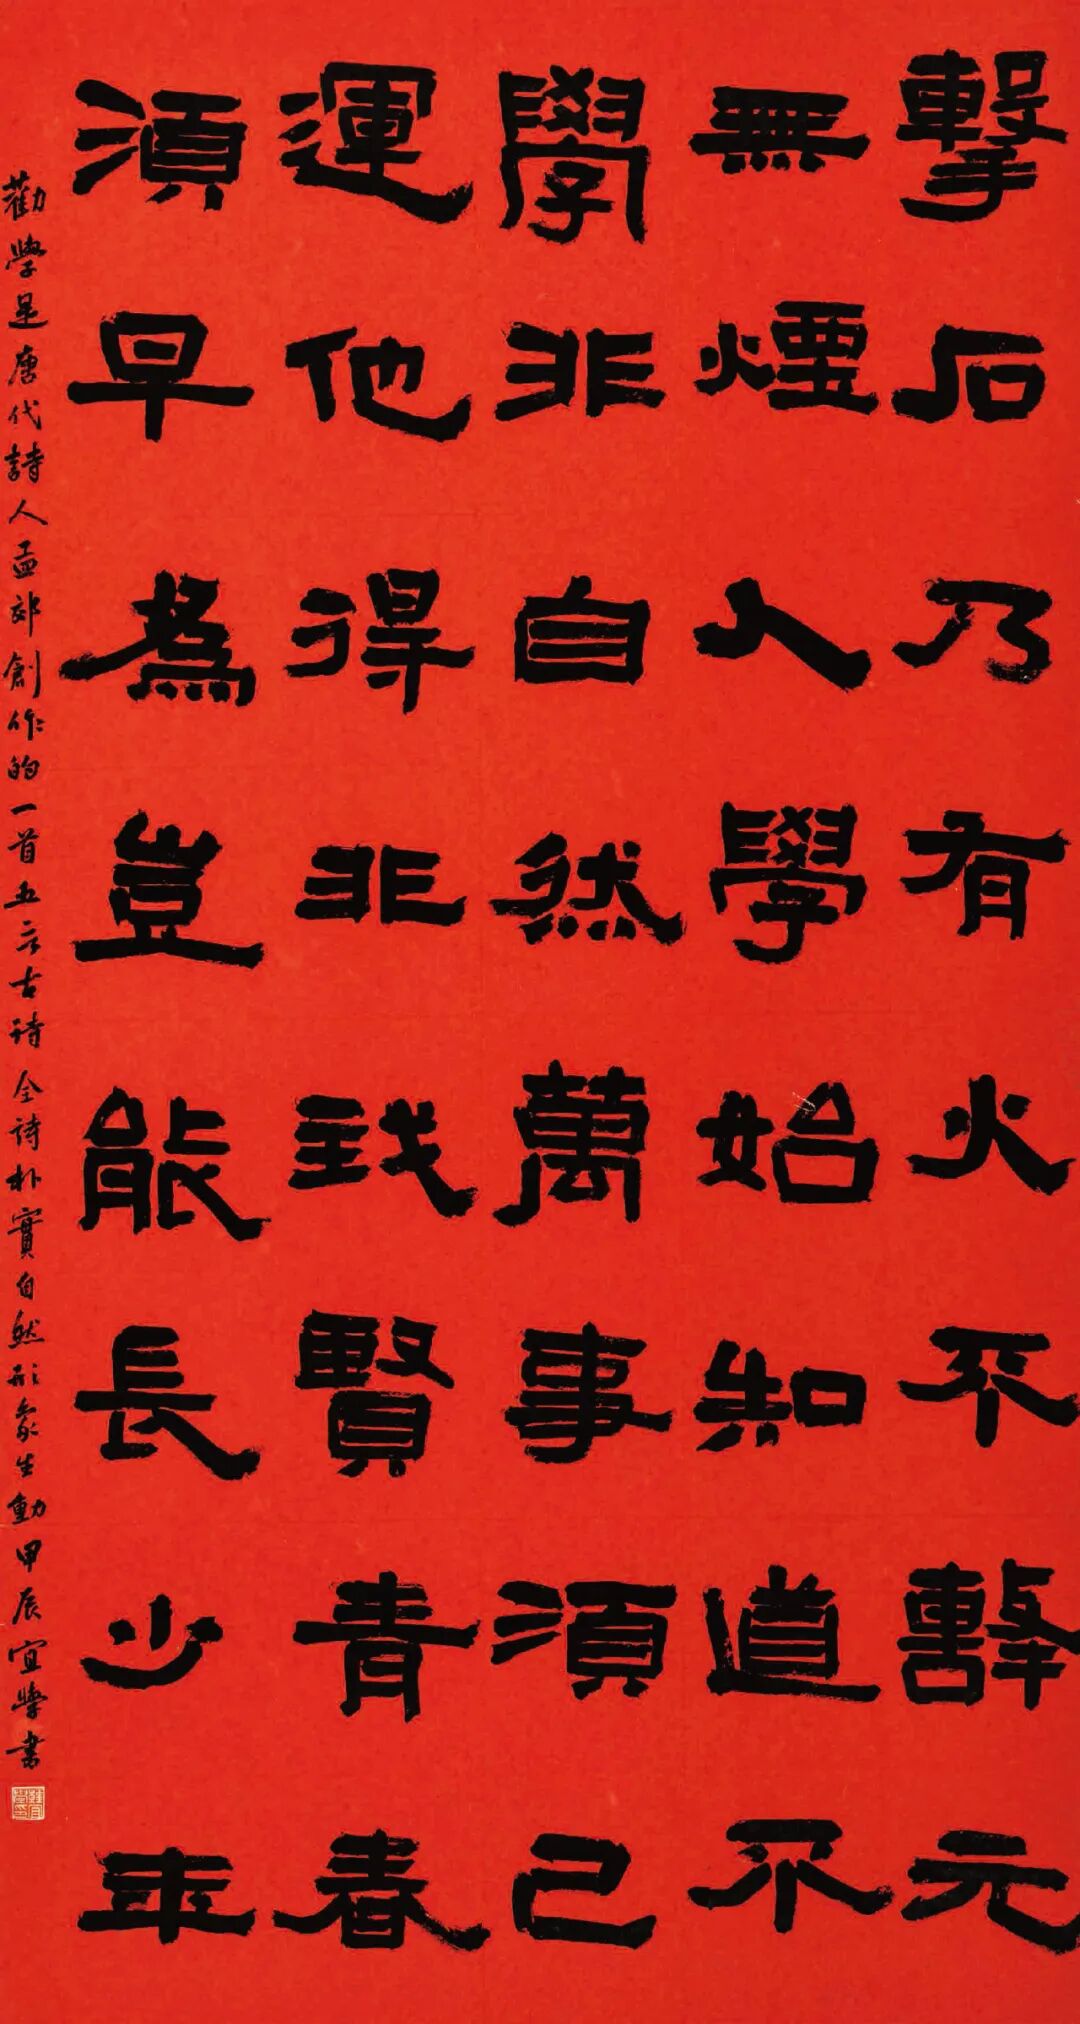 擊石乃有火不擊元
無煙人學始知道不
學非自然萬事須己
運他得非我賢青春
須早爲豈能長少年
勸學是唐代詩人孟郊創作的一首五言古詩全詩朴實自然形象生動甲辰宜學書